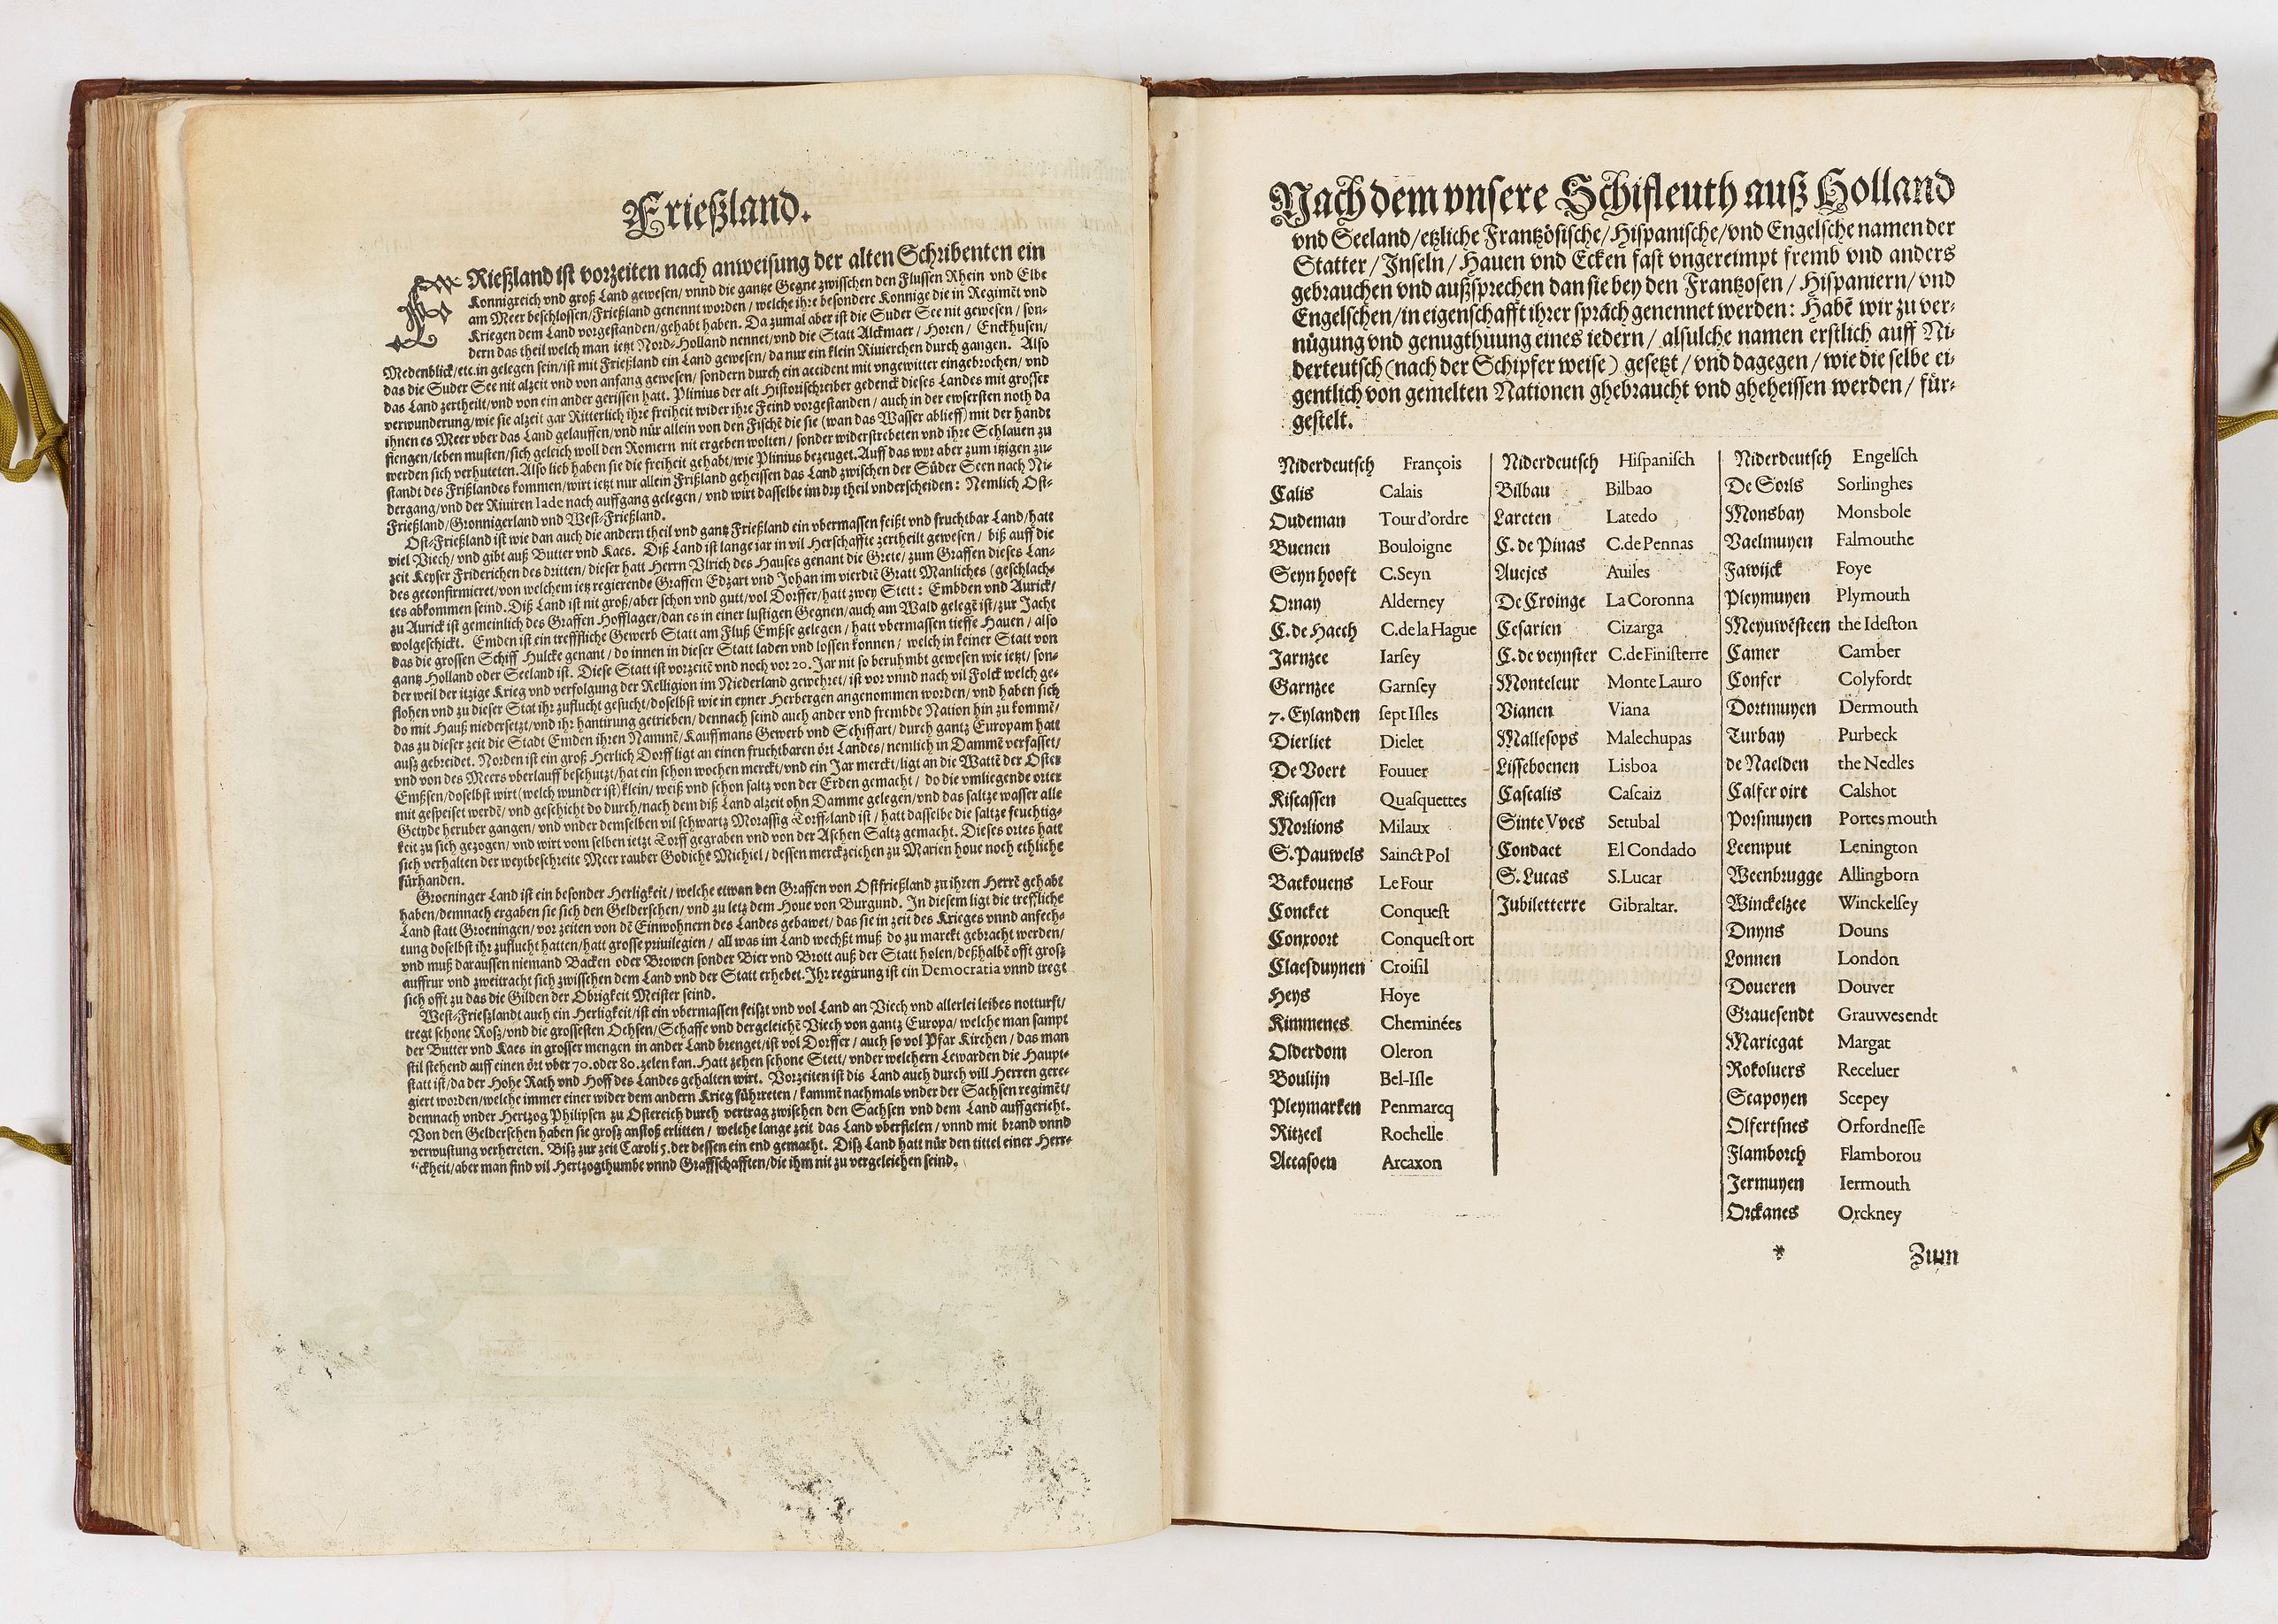 Frießland.
FRießland ist vorzeiten nach anweisung der alten Schribenten ein
Konnigreich vnd groß Land gewesen/ vnnd die gantze Gegne zwisschen den Flussen Rhein vnd Elbe
am Meer beschlossen/Frießland genennt worden/ welche ihre besondere Konnige die in Regimēt vnd
Kriegen dem Land vorgestanden/gehabt haben. Da zumal aber ist die Suder See nit gewesen/ son-
dern das theil welch man ietzt Nord-Holland nennet/vnd die Statt Alckmaer/ Horen/ Enckhusen/
Medenblick/etc.in gelegen sein/ist mit Frießland ein Land gewesen/da nur ein klein Riuierchen durch gangen. Also
das die Suder See nit alzeit vnd von anfang gewesen/ sondern durch ein accident mit vngewitter eingebrochen/ vnd
das Land zertheilt/vnd von ein ander gerissen hatt. Plinius der alt Historischreiber gedenck dieses Landes mit grosser
verwunderung/wie sie alzeit gar Ritterlich ihre freiheit wider ihre Feind vorgestanden/ auch in der ewsersten noth da
ihnen es Meer vber das Land gelauffen/vnd nür allein von den Fischē die sie (wan das Wasser ablieff) mit der handt
fiengen/leben musten/sich geleich woll den Romern nit ergeben wolten/ sonder widerstrebeten vnd ihre Schlauen zu
werden sich verhuteten. Also lieb haben sie die freiheit gehabt/wie Plinius bezeuget. Auff das wyr aber zum itzigen zu-
standt des Frißlandes kommen/wirt ietzt nur allein Frißland geheissen das Land zwischen der Süder Seen nach Ni-
dergang/vnd der Riuiren Iade nach auffgang gelegen/ vnd wirt dasselbe im dry theil vnderscheiden: Nemlich Ost-
Frießland/Gronnigerland vnd West-Frießland.
Ost-Frießland ist wie dan auch die andern theil vnd gantz Frießland ein vbermassen feißt vnd fruchtbar Land/hatt
viel Viech/ vnd gibt auß Butter vnd Kaes. Diß Land ist lange iar in vil Herschaffte zertheilt gewesen/ biß auff die
zeit Keyser Friderichen des dritten/ dieser hatt Herrn Vlrich des Hauses genant die Grete/ zum Graffen dieses Lan-
des geconfirmieret/von welchem ietz regierende Graffen Edzart vnd Johan im vierdtē Gratt Manliches (geschlach-
tes abkommen seind. Diß Land ist nit groß/aber schon vnd gutt/vol Dorffer/hatt zwey Stett: Embden vnd Aurick/
zu Aurick ist gemeinlich des Graffen Hofflager/dan es in einer lustigen Gegnen/auch am Wald gelegē ist/zur Jacht
wolgeschickt. Emden ist ein treffliche Gewerb Statt am Fluß Emßse gelegen/ hatt vbermassen tieffe Hauen/ also
das die grossen Schiff Hulcke genant/ do innen in dieser Statt laden vnd lossen konnen/ welch in keiner Statt von
gantz Holland oder Seeland ist. Diese Statt ist vorzeitē vnd noch vor 20. Jar nit so beruhmbt gewesen wie ietzt/ son-
der weil der itzige Krieg vnd verfolgung der Relligion im Niederland gewehret/ ist vor vnnd nach vil Folck welch ge-
flohen vnd zu dieser Stat ihr zuflucht gesucht/doselbst wie in eyner Herbergen angenommen worden/ vnd haben sich
do mit Hauß niedersetzt/vnd ihr hantirung getrieben/ dennach seind auch ander vnd frembde Nation hin zu kommē/
das zu dieser zeit die Stadt Emden ihren Nammē/Kauffmans Gewerb vnd Schiffart/ durch gantz Europam hatt
außz gebreidet. Norden ist ein groß Herlich Dorff ligt an einen fruchtbaren ört Landes/ nemlich in Dammē verfasset/
vnd von des Meers vberlauff beschutzt/hat ein schon wochen merckt/vnd ein Jar merckt/ligt an die Wattē der Oster
Emßsen/doselbst wirt (welch wunder ist) klein/ weiß vnd schon saltz von der Erden gemacht/ do die vmliegende orter
mit gespeiset werdē/ vnd geschicht do durch/nach dem diß Land alzeit ohn Damme gelegen/vnd das saltze wasser alle
Getyde heruber gangen/ vnd vnder demselben vil schwartz Morassig Torff-land ist/ hatt dasselbe die saltze feuchtig-
keit zu sich gezogen/ vnd wirt vom selben ietzt Torff gegraben vnd von der Aschen Saltz gemacht. Dieses ortes hatt
sich verhalten der weytbeschreite Meer rauber Godichē Michiel/ dessen merckzeichen zu Marien houe noch ethliche
fürhanden.
Groeninger Land ist ein besonder Herligkeit/ welche etwan den Graffen von Ostfrießland zu ihren Herrē gehabt
haben/demnach ergaben sie sich den Gelderschen/ vnd zu letz dem Houe von Burgund. In diesem ligt die treffliche
Land statt Groeningen/ vor zeiten von dē Einwohnern des Landes gebawet/ das sie in zeit des Krieges vnnd anfech-
tung doselbst ihr zuflucht hatten/hatt grosse priuilegien/ all was im Land wechßt muß do zu marckt gebracht werden/
vnd muß daraussen niemand Backen oder Browen sonder Bier vnd Brott auß der Statt holen/deßhalbē offt grosz
auffrur vnd zweitracht sich zwisschen dem Land vnd der Statt erhebet. Ihr regirung ist ein Democratia vnnd tregt
sich offt zu das die Gilden der Obrigkeit Meister seind.
West-Frießlandt auch ein Herligkeit/ist ein vbermassen feiszt vnd vol Land an Viech vnd allerlei leibes notturft/
tregt schone Rosz/vnd die grossesten Ochsen/Schaffe vnd dergeleichē Viech von gantz Europa/ welche man sampt
der Butter vnd Kaes in grosser mengen in ander Land brenget/ist vol Dorffer/ auch so vol Pfar Kirchen/ das man
stil stehend auff einen ört vber 70. oder 80. zelen kan. Hatt zehen schone Stett/ vnder welchern Lewarden die Haupt-
statt ist/da der Hohe Rath vnd Hoff des Landes gehalten wirt. Vorzeiten ist dis Land auch durch vill Herren gere-
giert worden/welche immer einer wider dem andern Krieg führreten/ kammē nachmals vnder der Sachsen regimēt/
demnach vnder Hertzog Philipsen zu Ostereich durch vertrag zwischen den Sachsen vnd dem Land auffgericht.
Von den Gelderschen haben sie grosz anstoß erlitten/ welche lange zeit das Land vberfielen/ vnnd mit brand vnnd
verwustung verhereten. Bißz zur zeit Caroli 5. der dessen ein end gemacht. Disz Land hatt nür den tittel einer Herr-
ickheit/aber man find vil Hertzogthumbe vnnd Graffschafften/die ihm nit zu vergeleichen seind.
Nach dem vnsere Schifleuth auß Holland
vnd Seeland/etzliche Frantzösische/Hispanische/vnd Engelsche namen der
Statter/Inseln/Hauen vnd Ecken fast vngereimpt fremb vnd anders
gebrauchen vnd außsprechen dan sie bey den Frantzosen/Hispaniern/vnd
Engelschen/in eigenschafft ihrer sprach genennet werden: Habē wir zu ver-
nügung vnd genugthuung eines iedern/ alsulche namen erstlich auff Ni-
derteutsch (nach der Schipfer weise) gesetzt/ vnd dagegen/ wie die selbe ei-
gentlich von gemelten Nationen ghebraucht vnd gheheissen werden/ für-
gestelt.
Niderdeutsch François Niderdeutsch Hiſpaniſch Niderdeutsch Engelſch
Calis Calais Bilbau Bilbao De Sorls Sorlinghes
Oudeman Tour d'ordre Larcten Latedo Monsbay Monsbole
Buenen Bouloigne C. de Pinas C. de Pennas Vaelmuyen Falmouthe
Seyn hooft C. Seyn Auejes Auiles Fawijck Foye
Ornay Alderney De Croinge La Coronna Pleymuyen Plymouth
C. de Haech C. de la Hague Cesarien Cizarga Meyuwēsteen the Ideſton
Jarnzee Iarſey C. de veynster C. de Finiſterre Camer Camber
Garnzee Garnſey Monteleur Monte Lauro Confer Colyfordt
7. Eylanden ſept Iſles Vianen Viana Dortmuyen Dermouth
Dierliet Dielet Mallesops Malechupas Turbay Purbeck
De Voert Fouuer Lisseboenen Lisboa de Naelden the Nedles
Kiscassen Quaſquettes Cascalis Caſcaiz Calfer oirt Calshot
Morlions Milaux Sinte Vves Setubal Porsmuyen Portes mouth
S. Pauwels Sainct Pol Condaet El Condado Leemput Lenington
Backouens Le Four S. Lucas S. Lucar Weenbrugge Allingborn
Concket Conqueſt Jubiletterre Gibraltar. Winckelzee Winckelſey
Conxoort Conqueſt ort Duyns Douns
Claesduynen Croiſil Lonnen London
Heys Hoye Doueren Douver
Kimmenes Cheminées Grauesendt Grauwesendt
Olderdom Oleron Mariegat Margat
Boulijn Bel-Iſle Rokoluers Receluer
Pleymarken Penmarcq Scapoyen Scepey
Ritzeel Rochelle Olfertsnes Orfordneſſe
Accasoen Arcaxon Flamborch Flamborou
Jermuyen Iermouth
Orckanes Orckney
* Zum